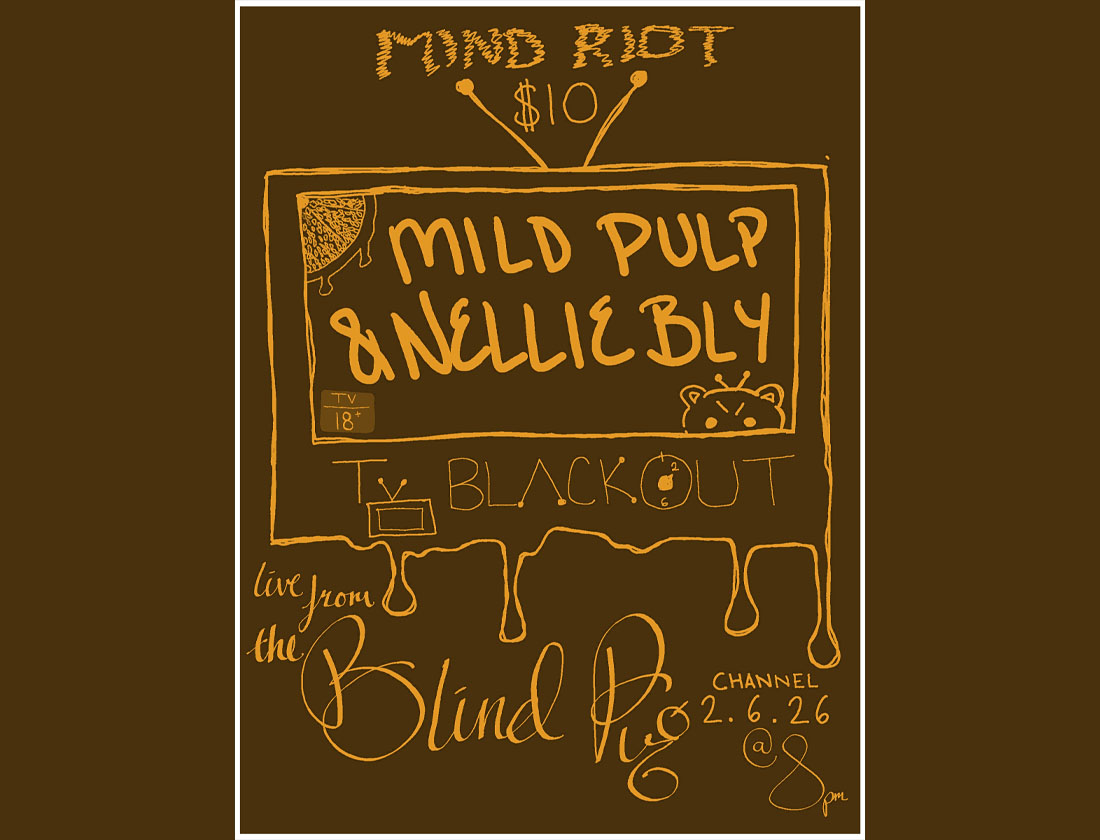 MIND RIOT
$10
MILD PULP
& NELLIE BLY
TV
18+
TV BLACKOUT
2
6
live from
the Blind Pig
CHANNEL
2.6.26
@ 8pm